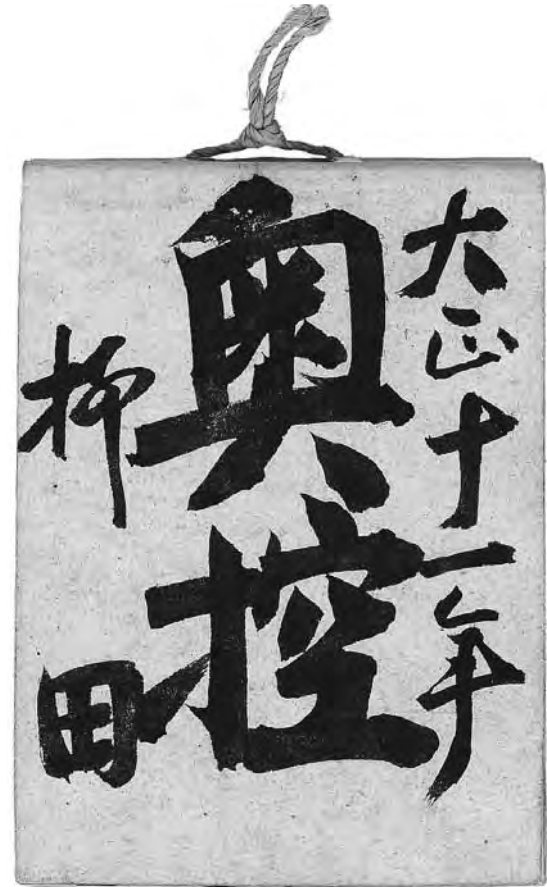 大正十一年
奥控
柳田